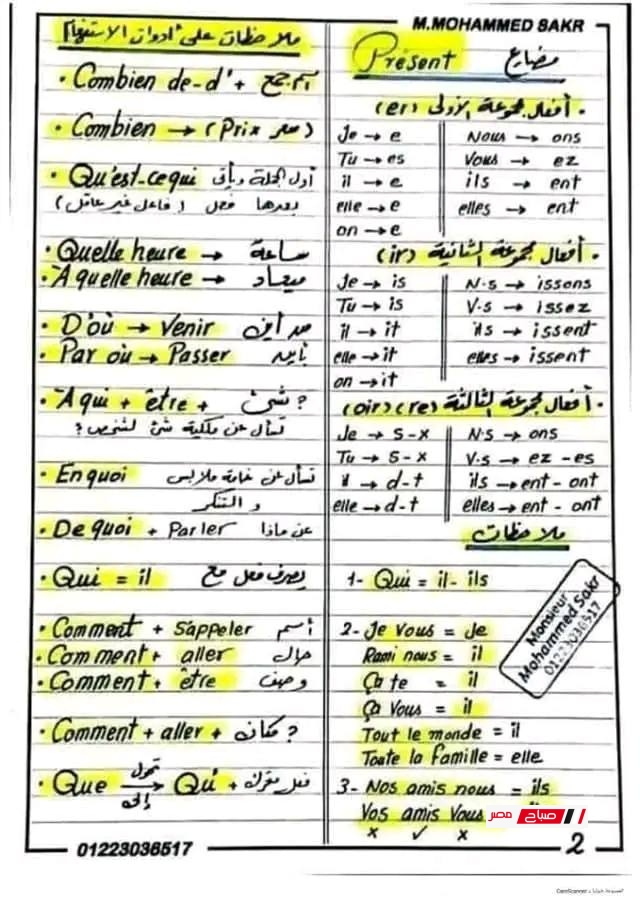 M.MOHAMMED SAKR
مضارع
Présent
. أفعال مجموعة الأولى (er)
Je → e
Nous → ons
Tu → es
Vous → ez
il → e
ils → ent
elle → e
elles → ent
on → e
. أفعال مجموعة الثانية (ir)
Je → is
N.s → issons
Tu → is
V.s → issez
il → it
ils → issent
elle → it
elles → issent
on → it
. أفعال مجموعة الثالثة (re) (oir)
Je → s-x
N.s → ons
Tu → s-x
V.s → ez - es
il → d-t
ils → ent - ont
elle → d-t
elles → ent - ont
ملاحظات
1- Qui = il - ils
2- Je vous = Je
Rami nous = il
Ça te = il
Ça vous = il
Tout le monde = il
Toute la famille = elle
3- Nos amis nous = ils
Vos amis vous
x ✓ x
Monsieur
Mohammed Sakr
01223036517
صباح مصر
2
ملاحظات على أدوات الاستفهام
• Combien de-d' + اسم جمع
• Combien → (Prix سعر)
• Qu'est-ce qui أول الجملة ويأتى
بعدها فعل (فاعل غير عاقل)
• Quelle heure → ساعة
• A quelle heure → ميعاد
• D'où → Venir من أين
• Par où → Passer
• A qui + être + شئ ?
تسأل عن ملكية شئ لشخص ?
• En quoi تسأل عن خامة ملابس
و التنكر
• De quoi + Parler عن ماذا
• Qui = il يصرف فعل مع
• Comment + s'appeler أسم
• Comment + aller حال
• Comment + être وصف
• Comment + aller + مكان ?
• Que تحول إلى → Qui +
01223036517
CamScanner